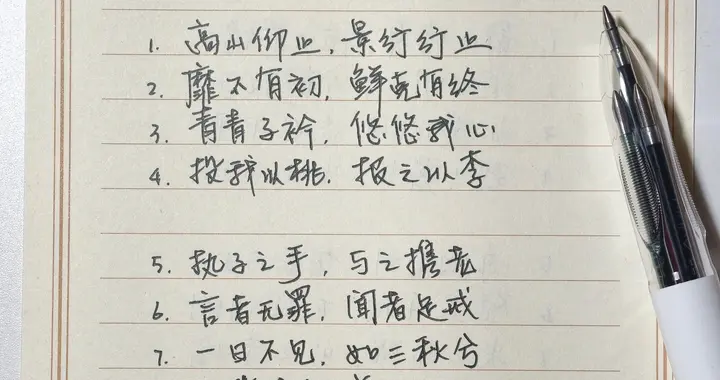 1. 高山仰止，景行行止
2. 靡不有初，鲜克有终
3. 青青子衿，悠悠我心
4. 投我以桃，报之以李
5. 执子之手，与之携老
6. 言者无罪，闻者足戒
7. 一日不见，如三秋兮